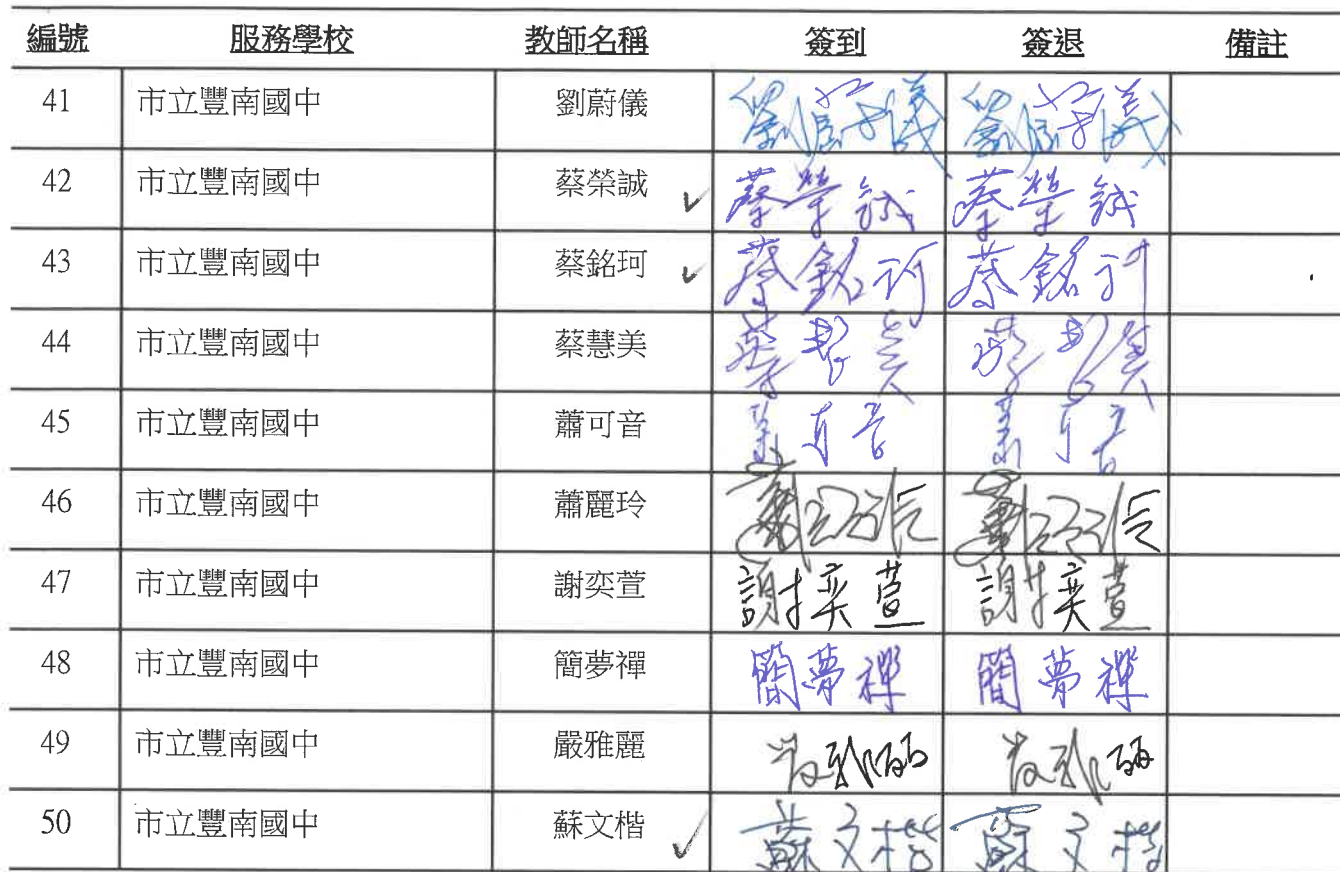 編號 服務學校 教師名稱 簽到 簽退 備註
41 市立豐南國中 劉蔚儀 劉蔚儀 劉蔚儀
42 市立豐南國中 蔡榮誠 ✓ 蔡榮誠 蔡榮誠
43 市立豐南國中 蔡銘珂 ✓ 蔡銘珂 蔡銘珂
44 市立豐南國中 蔡慧美 蔡慧美 蔡慧美
45 市立豐南國中 蕭可音 蕭可音 蕭可音
46 市立豐南國中 蕭麗玲 蕭麗玲 蕭麗玲
47 市立豐南國中 謝奕萱 謝奕萱 謝奕萱
48 市立豐南國中 簡夢禪 簡夢禪 簡夢禪
49 市立豐南國中 嚴雅麗 嚴雅麗 嚴雅麗
50 市立豐南國中 蘇文楷 ✓ 蘇文楷 蘇文楷